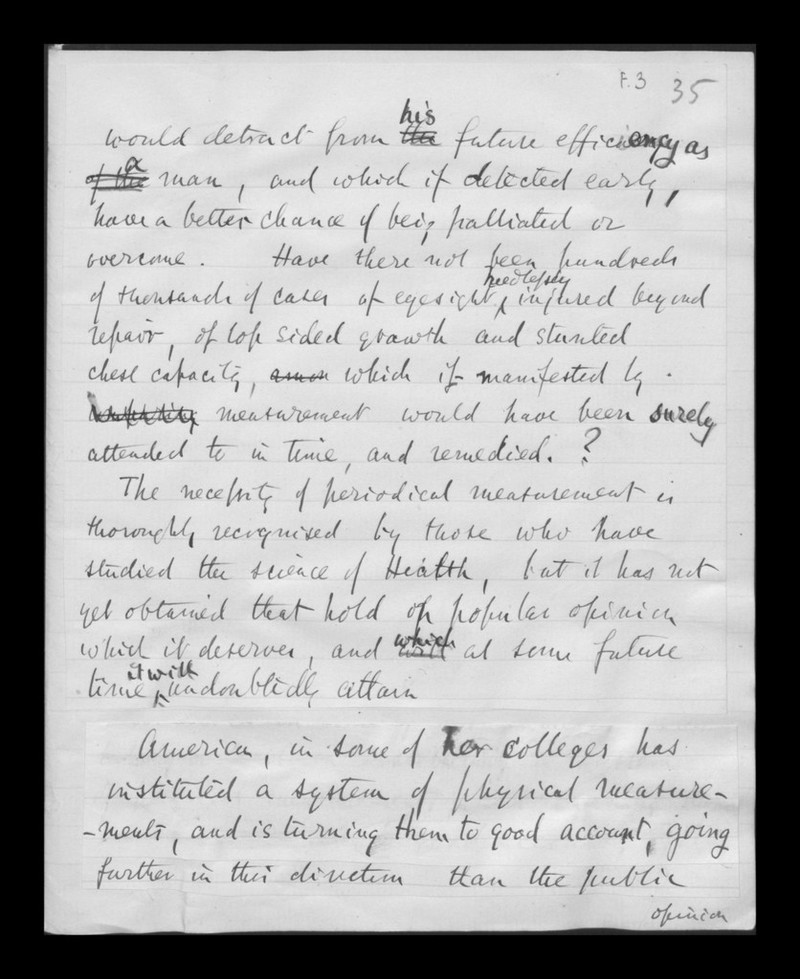 F.3 35
his
would detract from the future efficiency as
a
of the man, and which if detected early,
have a better chance of being palliated or
overcome. Have there not been hundreds
needlessly
of thousands of cases of eyesight injured beyond
repair, of lop sided growth and stunted
chest capacity, which if manifested by
measurement would have been surely
attended to in time, and remedied. ?
The necessity of periodical measurement is
thoroughly recognised by those who have
studied the science of Health, but it has not
yet obtained that hold on popular opinion
which it deserves, and which at some future
it will
time undoubtedly attain
America, in some of her colleges has
instituted a system of physical measure-
-ments, and is turning them to good account, going
further in this direction than the public
opinion